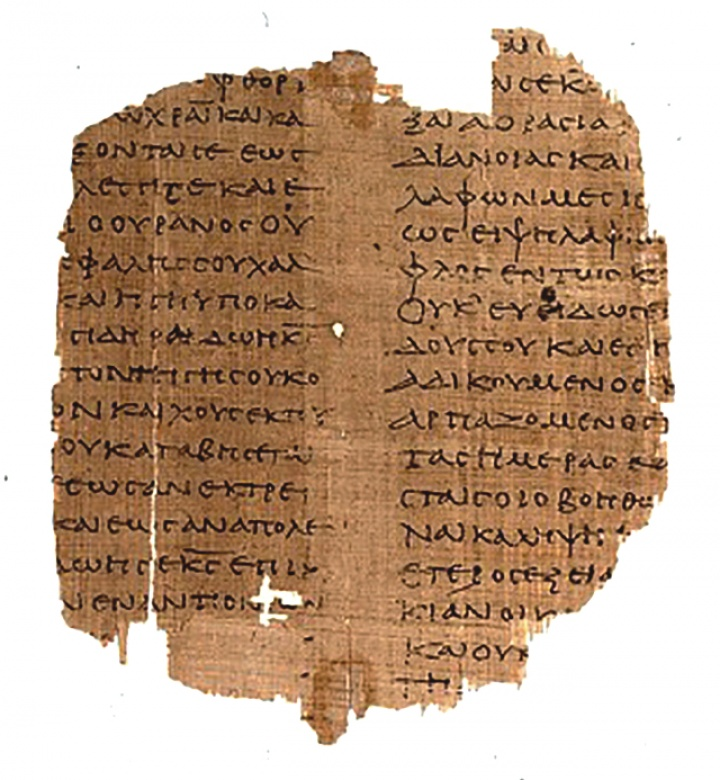 ΦΘΟΡΙ
ΩΧΡΑΙΚΑΙΚΑ
ΞΟΝΤΑΙϹΕΕΩϹ
ΛΕϹΗϹΕΚΑΙΕ
ΟΟΥΡΑΝΟϹΟΥ
ΦΑΛΗϹϹΟΥΧΑΛ
ΚΑΙΗΓΗΥΠΟΚΑ
ϹΙΔΗΡΑΔΩΗΚ̅Ϲ̅
ΤΟΝΤΗΓΗϹΟΥΚΟ
ΟΝΚΑΙΧΟΥϹΕΚΤΟΥ
ΟΥΚΑΤΑΒΗϹΕΤΑΙ
ΕΩϹΑΝΕΚΤΡΕΙ
ΚΑΙΕΩϹΑΝΑΠΟΛΕ
ΔΩΗϹΕΚ̅Ϲ̅ΕΠΙΚ
ΕΝΑΝΤΙΟΝΤΩΝ
ΝϹΕΚ
ΞΑΙΑΟΡΑϹΙΑ
ΔΙΑΝΟΙΑϹΚΑΙ
ΛΑΦΩΝΜΕϹΗ
ΩϹΕΙΨΗΛΑΦΗ
ΦΛΟϹΕΝΤΩΙϹΚ
ΟΥΚΕΥΟΔΩϹΕΙ
ΔΟΥϹϹΟΥΚΑΙΕϹΗ
ΑΔΙΚΟΥΜΕΝΟϹ
ΑΡΠΑΖΟΜΕΝΟϹ
ΤΑϹΗΜΕΡΑϹΚΑ
ϹΤΑΙϹΟΙΟΒΟΗΘΩ
ΝΑΙΚΑΛΗΨΗ
ΕΤΕΡΟϹΕΞΕΙΑ
ΚΙΑΝΟΙΚ
ΚΑΙΟΥΚ